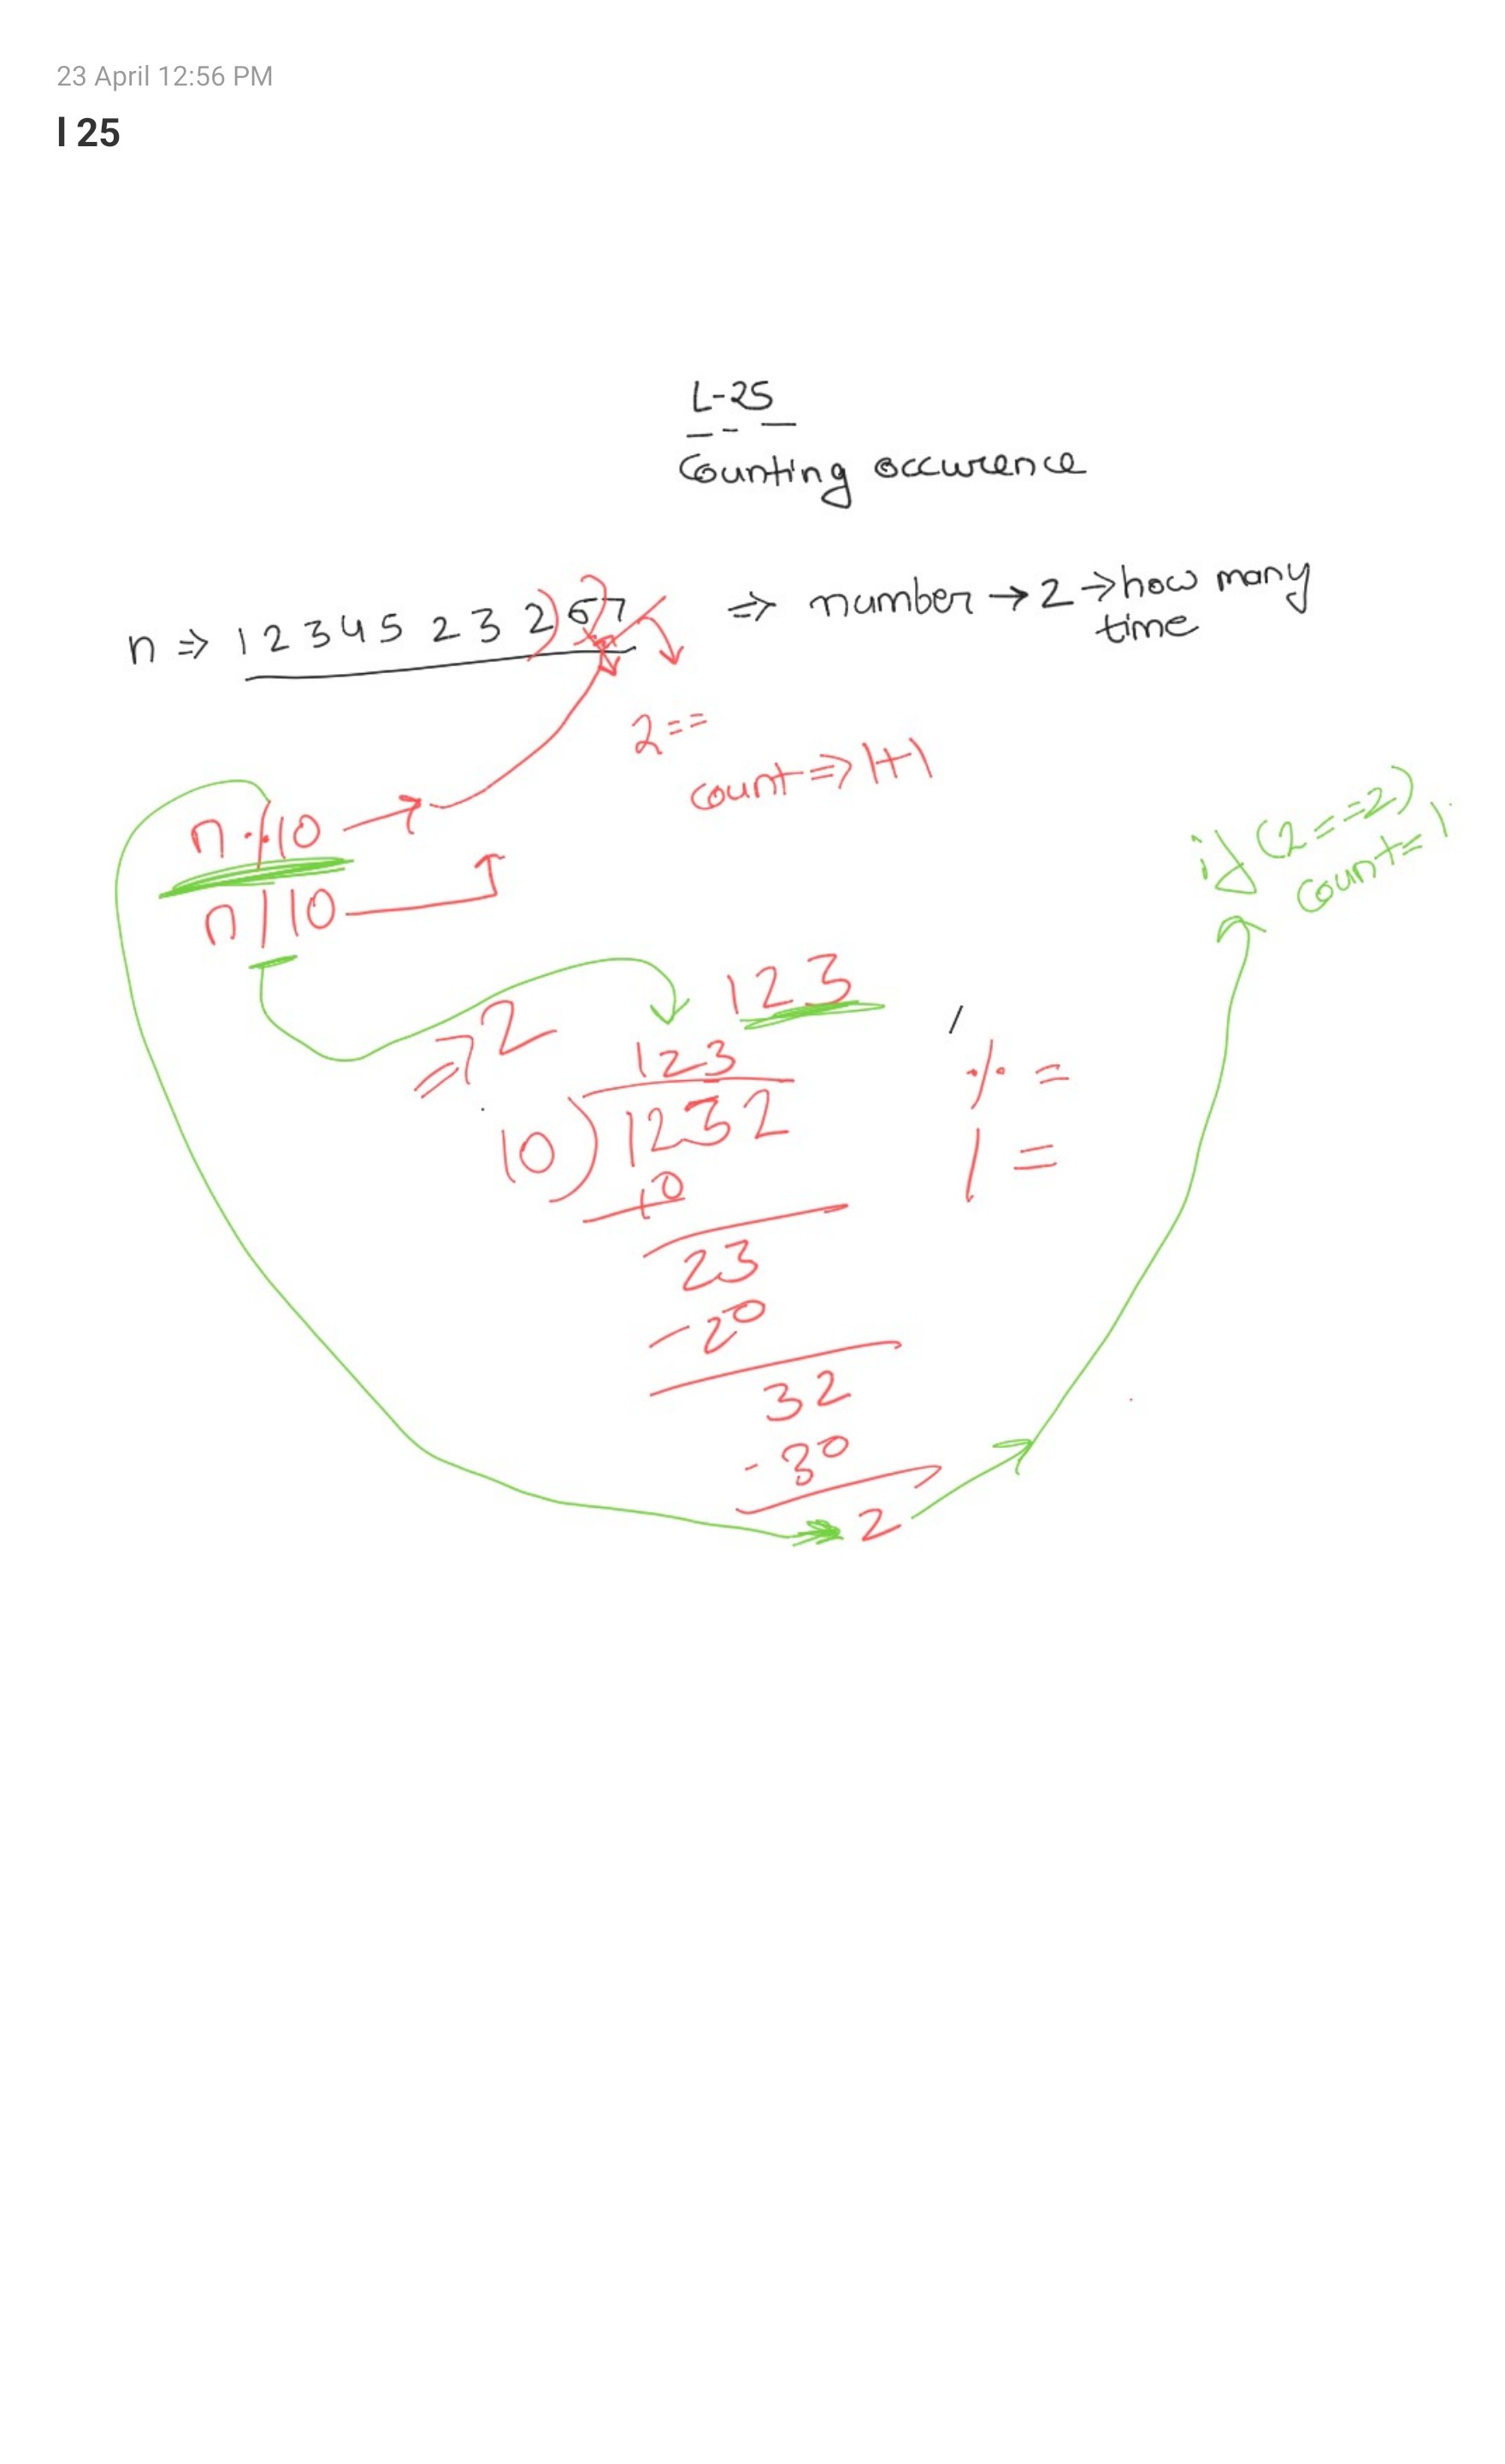 23 April 12:56 PM
l 25
L-25
Counting occurence
n ⇒ 1 2 3 4 5 2 3 2) 5) 7 ⇒ number → 2 → how many
time
2 ==
count ⇒ 1+1
n % 10 →
n / 10
if (2 == 2)
count = 1
123
⇒ 2
123
10) 1232
10
23
- 20
32
- 30
2
/
% =
/ =